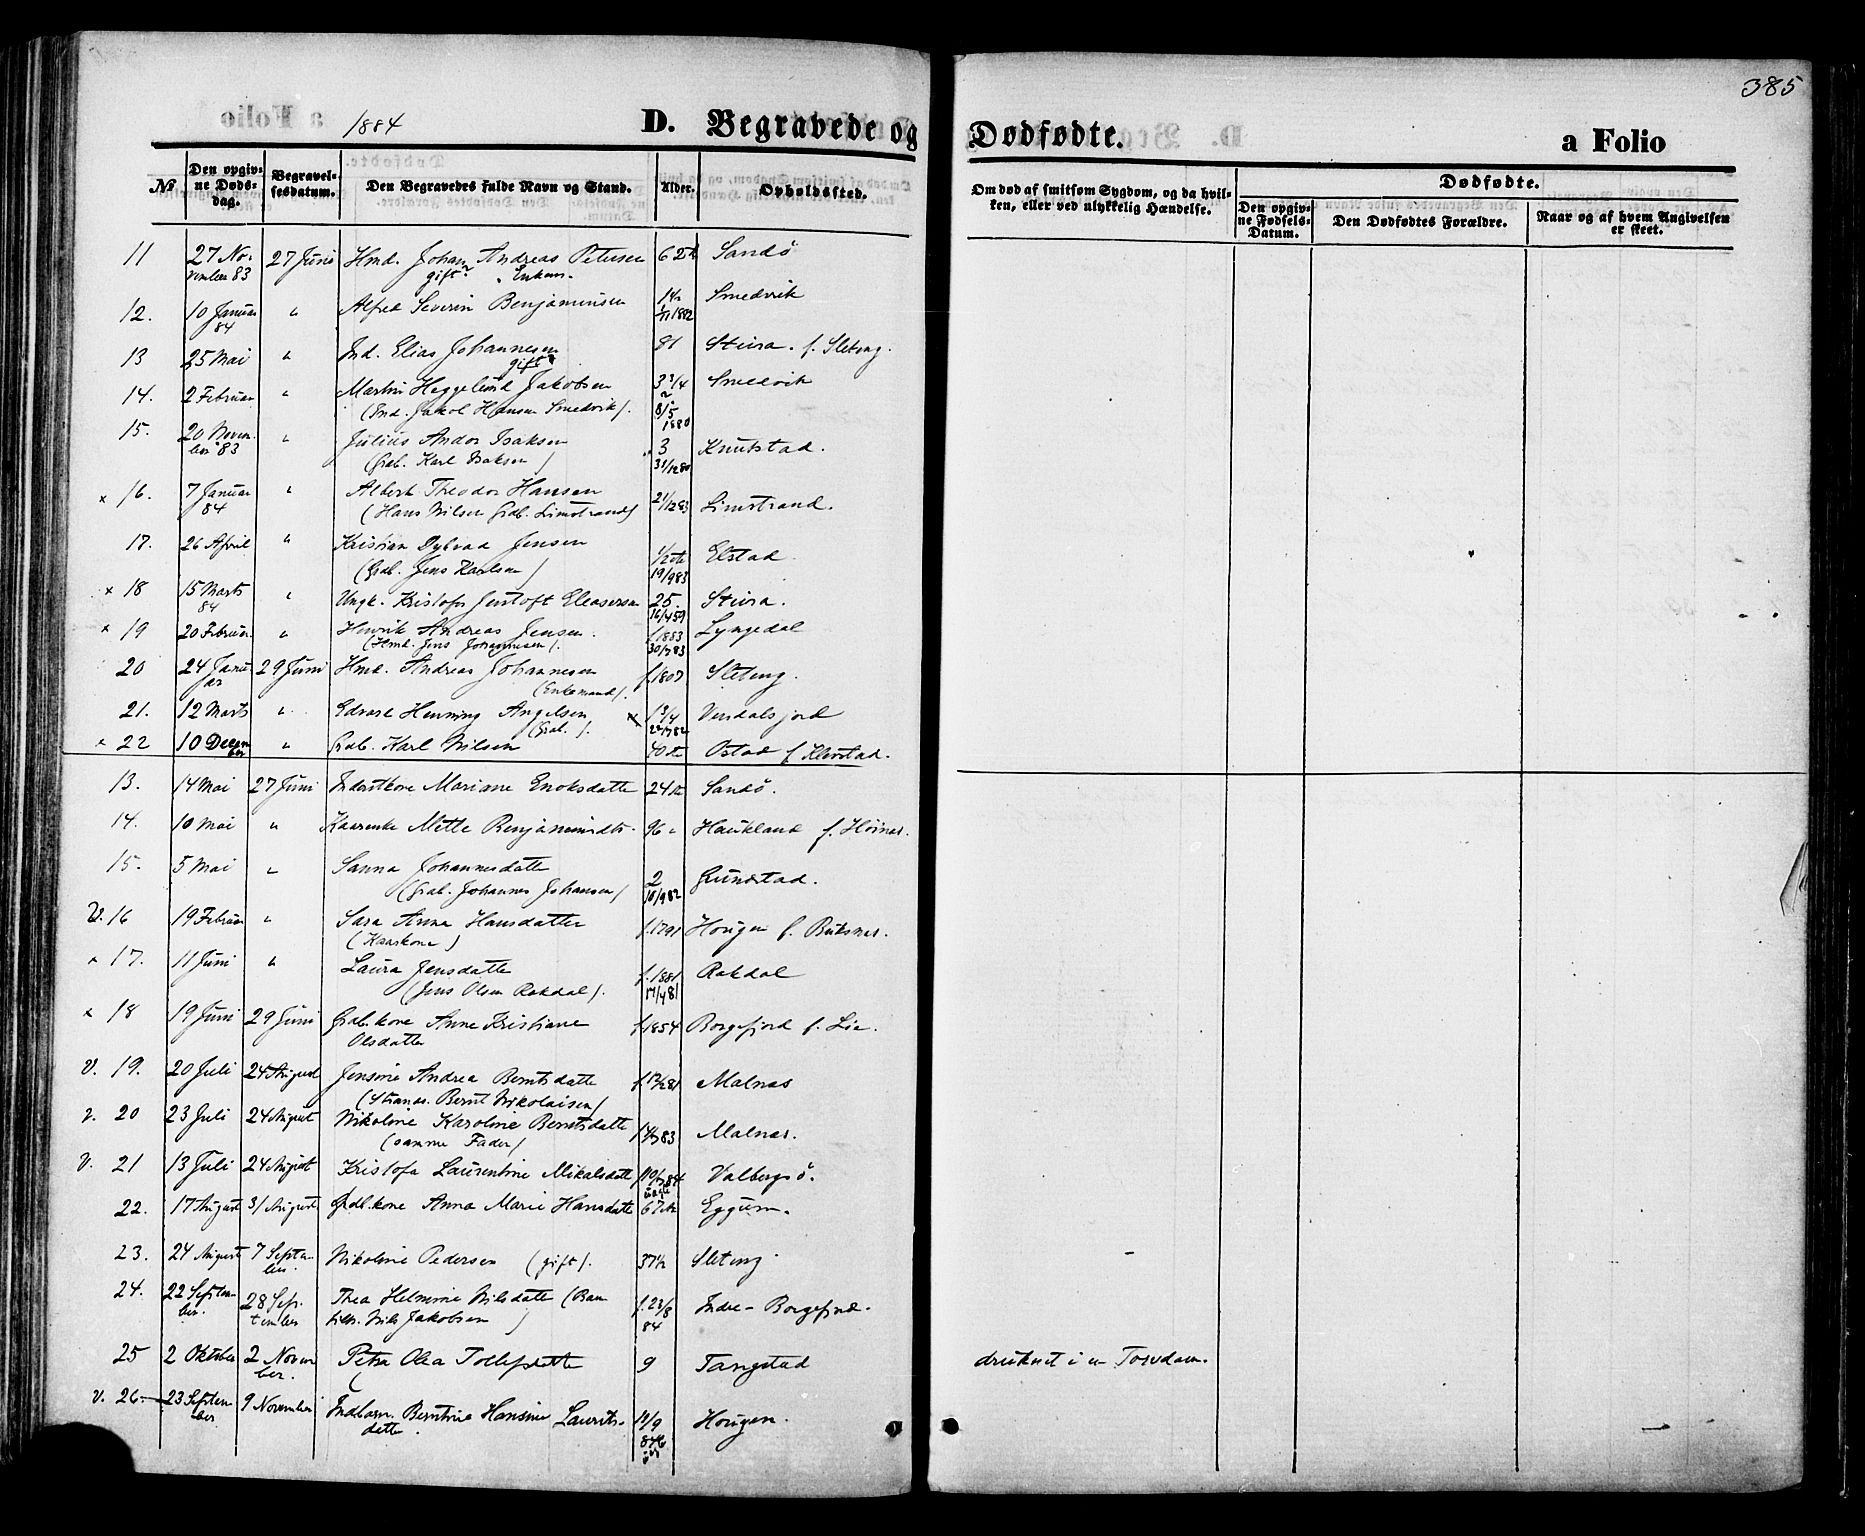 385
1884 D. Begravede og Dødfødte. a Folio
№
Den opgivne Dødsdag.
Begravelsesdatum.
Den Begravedes fulde Navn og Stand.
Alder.
Opholdssted.
Om død af smitsom Sygdom, og da hvilken, eller ved ulykkelig Hændelse.
Dødfødte.
Den opgivne Fødselsdatum.
Den Dødfødtes Forældre.
Naar og af hvem Angivelsen er skeet.
11 27 November 83 27 Juni Hmd. Johan Andreas Petersen 62 Sandö
gift
12. 10 Januar 84 " Alfred Severin Benjaminsen 1882 Smedvik
13 25 Mai " Ind. Elias Johannesen 81 Steira. f. Sleteng.
gift
14. 2 Februar " Martin Heggelund Jakobsen 3 3/4 Smedvik
(Ind. Jakob Hansen Smedvik). 8/5 1880
15. 20 November 83 " Julius Andor Isaksen 3 Knutstad.
(Grdb. Karl Isaksen) 31/12 80
x 16. 7 Januar 84 " Albert Theodor Hansen 21/12 83 Limstrand.
(Hans Nilsen Grdb. Limstrand)
17. 26 April " Kristian Dybvad Jensen 1/2 Elstad
(Grdb. Jens Karlsen) 19/9 83
x 18 15 Marts 84 " Ungk. Kristofer Jentoft Eleasersen 25 Steira.
16/4 59
x 19 20 Februar " Henrik Andreas Jensen. f. 1883 Lyngedal
(Hmd. Jens Johannesen). 30/7 83
20 24 Januar 29 Juni Hmd. Andreas Johannesen f. 1807 Sleteng.
(Enkemand).
21. 12 Marts " Edvard Henning Angelsen 1 3/4 Vendalsjord
(Grdb. ). 22/7 82
x 22 10 Decem ber " Grdb. Karl Nilsen 40 Ostad f. Klevstad.
13. 14 Mai 27 Juni Inderstkone Mariane Enoksdatter 24 Sandö.
14. 10 Mai " Kaarenke Mette Benjaminsdtr. 96 " Haukland f. Höines.
15. 5 Mai " Sanna Johannesdatter 2 Grundstad.
(Grdb. Johannes Johansen) 10/9 82
V. 16 19 Februar " Sara Anna Hansdatter f. 1791 Hougen f. Buksnes.
(Kaarkone)
x 17. 11 Juni " Laura Jensdatter f. 1881 Rakdal
(Jens Olsen Rakdal). 17/4 81
x 18 19 Juni 29 Juni Grdb.kone Anne Kristiane f. 1854 Borgefjord f. Lie.
Olsdatter
V. 19. 20 Juli 24 August Jensine Andrea Berntsdatter Malnes
(Strands. Bernt Nikolaisen)
V. 20 23 Juli 24 August Nikoline Karoline Berntsdatter Malnes.
(samme Fader)
V. 21 13 Juli 24 August Kristofa Laurentine Mikalsdatter Valbergsö.
22. 17 August 31 August Grdb.kone Anna Marie Hansdatter 67 Eggum.
23. 24 August 7 September Nikoline Pedersen (gift). 37 1/2 Sleteng.
24. 22 September 28 September Thea Helmine Nilsdatter f. 23/8 84 Indre-Borgefjord.
Nils Jakobsen)
25 2 Oktober 2 November Petra Olea Tollefsdatter 9 Tangstad druknet i en Torvdam.
V. 26 23 September 9 November Indbarn. Berntine Hansine Lauritsdatter. Hougen.